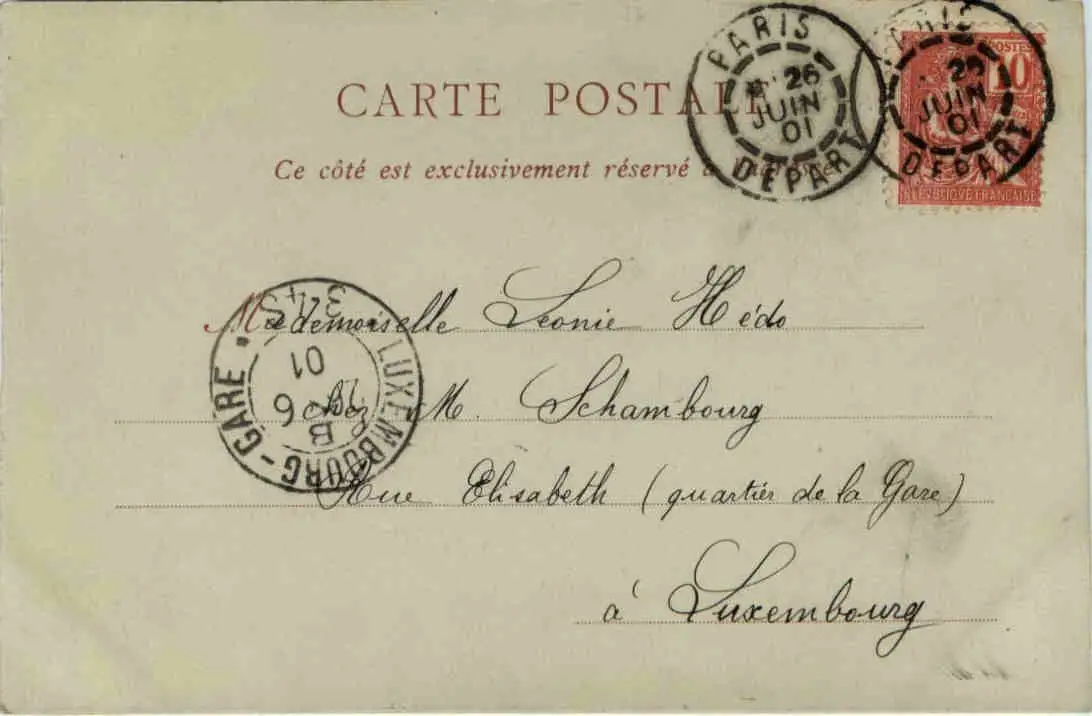 PARIS
26
JUIN
01
DÉPART
26
JUIN
01
DEPART
POSTES
10
REPVBLIQVE FRANÇAISE
CARTE POSTALE
Ce côté est exclusivement réservé à
Mademoiselle Léonie Hédo
chez M. Schambourg
Rue Elisabeth (quartier de la Gare)
à Luxembourg
LUXEMBOURG-GARE
01
6